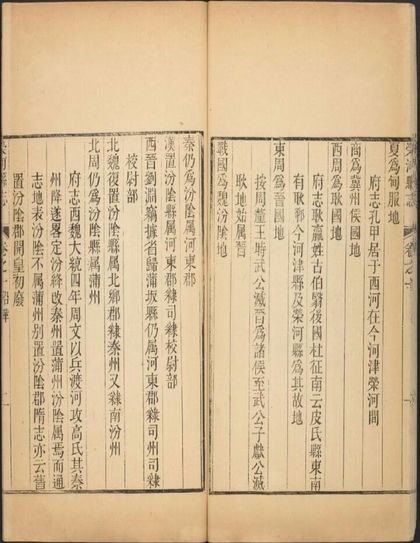 夏爲甸服地
府志孔甲居于西河在今河津滎河間
商爲冀州侯國地
西周爲耿國地
府志耿嬴姓古伯翳後國杜征南云皮氏縣東南
有耿鄉今河津縣及榮河縣爲其故地
東周爲晉國地
按周釐王時武公滅晉爲諸侯至武公子獻公滅
耿地始屬晉
戰國爲魏汾陰地
秦仍爲汾陰屬河東郡
漢置汾陰縣屬河東郡隸司隸校尉部
西晉劉淵竊據省歸蒲坂縣仍屬河東郡隸司州司隸
校尉部
北魏復置汾陰縣屬北鄉郡隸秦州又隸南汾州
北周仍爲汾陰縣屬蒲州
府志西魏大統四年周文以兵渡河攻高氏其秦
州降遂畧定汾絳改秦州置蒲州汾陰屬焉而通
志地表汾陰不屬蒲州别置汾陰郡隋志亦云舊
置汾陰郡開皇初廢